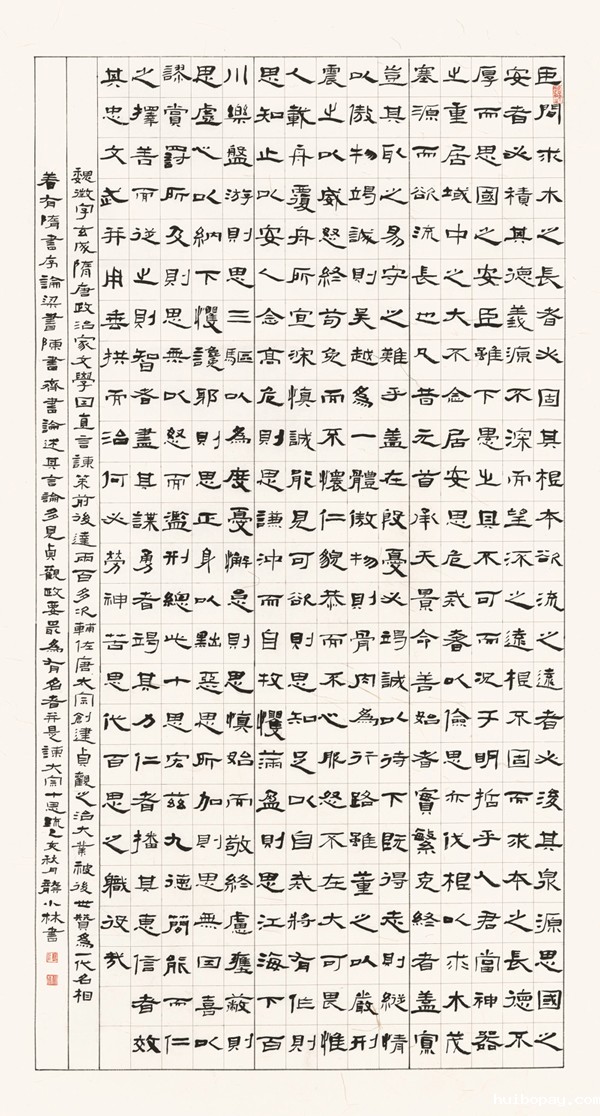 臣聞求木之長者必固其根本欲流之遠者必浚其泉源思國之
安者必積其德義源不深而望流之遠根不固而求木之長德不
厚而思國之安臣雖下愚之其不可而況于明哲乎人君當神器
之重居域中之大不念居安思危戒奢以儉思亦伐根以求木茂
塞源而欲流長也凡昔元首承天景命善始者實繁克終者蓋寡
豈其取之易守之難乎蓋在殷憂必竭誠以待下既得志則縱情
以傲物竭誠則吳越為一體傲物則骨肉為行路雖董之以嚴刑
震之以威怒終苟免而不懷仁貌恭而不心服怒不在大可畏惟
人載舟覆舟所宜深慎誠能見可欲則思知足以自戒將有作則
思知止以安人念高危則思謙沖而自牧懼滿盈則思江海下百
川樂盤游則思三驅以為度憂懈怠則思慎始而敬終慮壅蔽則
思虛心以納下懼讒邪則思正身以黜惡思所加則思無因喜以
謬賞罰所及則思無以怒而濫刑總此十思宏茲九德簡能而仁
之擇善而從之則智者盡其謀勇者竭其力仁者播其惠信者效
其忠文武并用垂拱而治何必勞神苦思代百思之職役哉
魏徵字玄成隋唐政治家文學因直言諫策前後達兩百多次輔佐唐太宗創建貞觀之治大業被後世贊為一代名相
著有隋書序論梁書陳書齊書論述其言論多見貞觀政要最為有名者并是諫太宗十思疏乙亥秋月龔小林書
huibopay.com